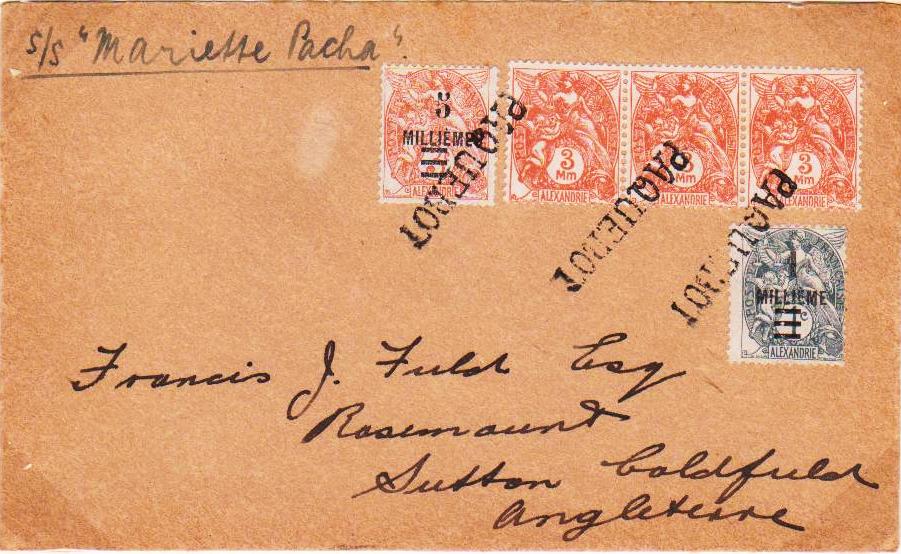 s/s "Mariette Pacha".
5
MILLIÈMES
ALEXANDRIE
3
Mm
ALEXANDRIE
Mm
ALEXANDRIE
3
Mm
ALEXANDRIE
PAQUEBOT
PAQUEBOT
PAQUEBOT
1
MILLIÈME
POSTE FRANÇAISE
ALEXANDRIE
Francis J. Fuld Esq
Rosemount
Sutton Coldfield
Angleterre